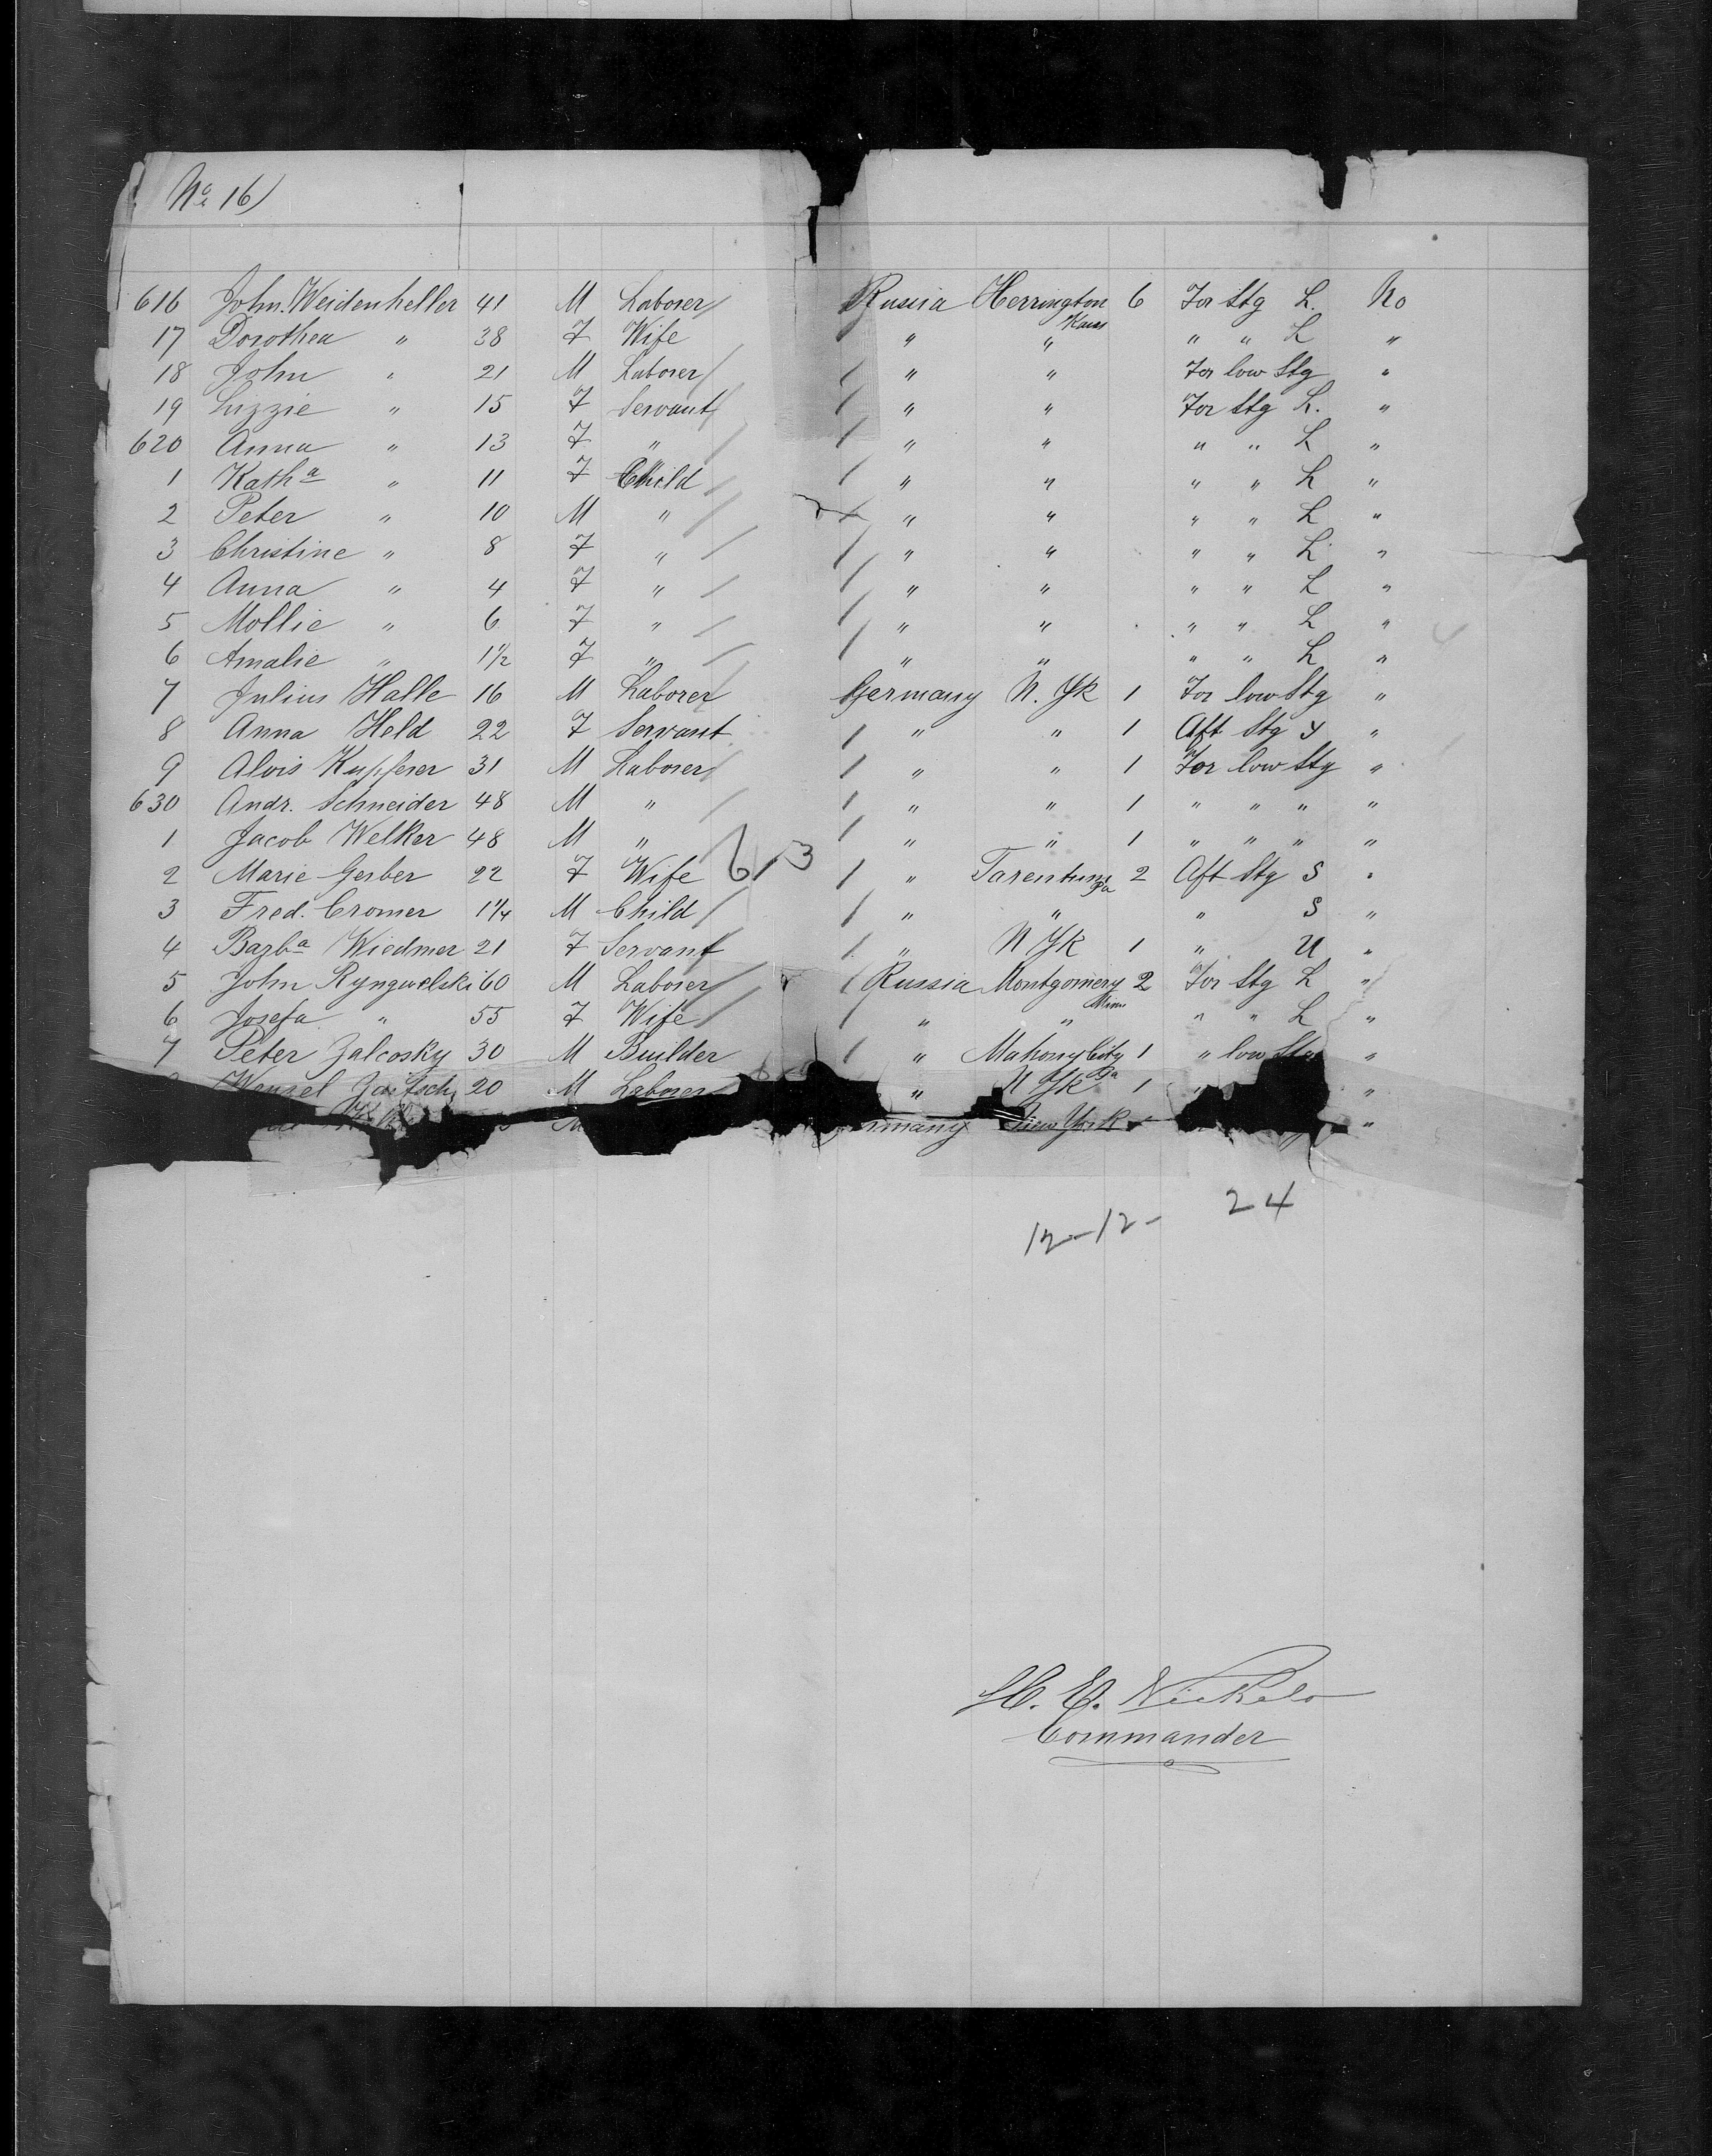 No 16)
616 John Weidenheller 41 M Laborer Russia Herrington Kans 6 For Stg L. No
17 Dorothea " 38 F Wife / " " " " L "
18 John " 21 M Laborer / " " For low Stg "
19 Lizzie " 15 F Servant / " " For Stg L. "
620 Anna " 13 F " / " " " " L "
1 Katha " 11 F Child / " " " " L "
2 Peter " 10 M " / " " " " L "
3 Christine " 8 F " / " " " " L "
4 Anna " 4 F " / " " " " L "
5 Mollie " 6 F " / " " " " L "
6 Amalie " 1 1/2 F " / " " " " L "
7 Julius Halle 16 M Laborer Germany N. Yk 1 For low Stg "
8 Anna Held 22 F Servant / " " 1 Aft Stg Y "
9 Alois Kupferer 31 M Laborer / " " 1 For low Stg "
630 Andr. Schneider 48 M " / " " 1 " " " "
1 Jacob Welker 48 M " / " " 1 " " " "
613
2 Marie Gerber 22 F Wife / " Tarentum Pa 2 Aft Stg S "
3 Fred. Cromer 1 1/4 M Child / " " " S "
4 Barba Wiedmer 21 F Servant / " N Yk 1 " U "
5 John Ryngwelski 60 M Laborer / Russia Montgomery Minn 2 For Stg L "
6 Josefa " 55 F Wife / " " " " L "
7 Peter Zalcosky 30 M Builder / " Mahony City Pa 1 " low Stg "
Wenzel 20 M Laborer " N Yk 1 " "
M Germany New York "
12-12- 24
H. E. Nickels
Commander